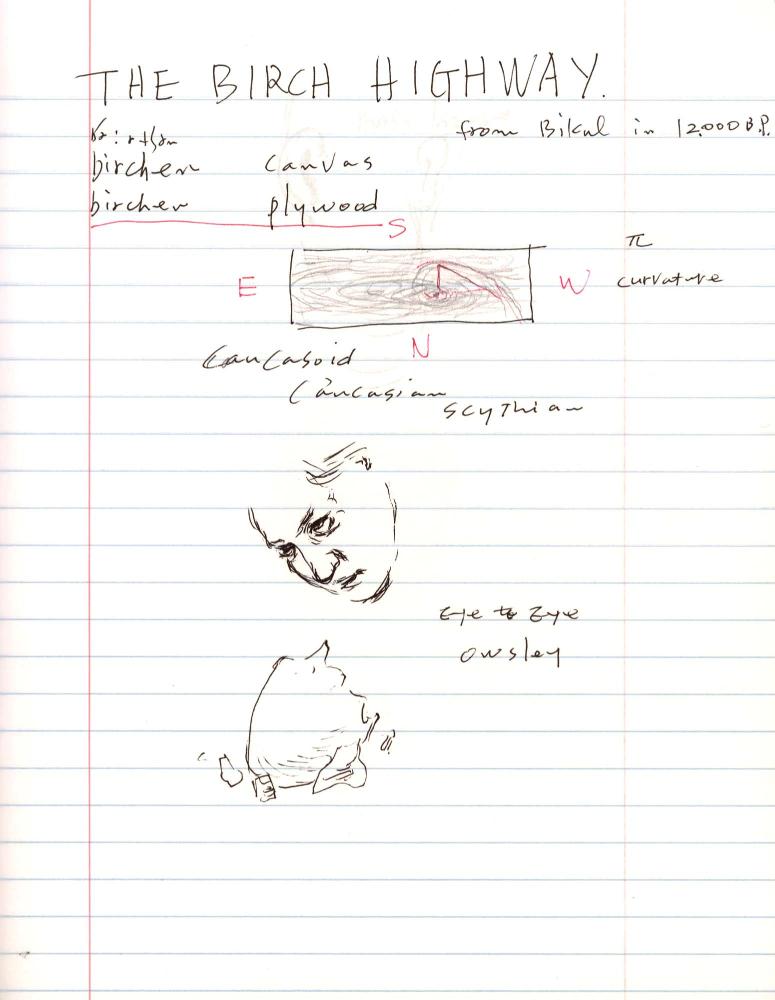 THE BIRCH HIGHWAY.
from Bikal in 12,000 B.P.
birchen canvas
birchen plywood
S
π
E W curvature
N
Caucasoid
Caucasian
Scythian
Eye to Eye
Owsley